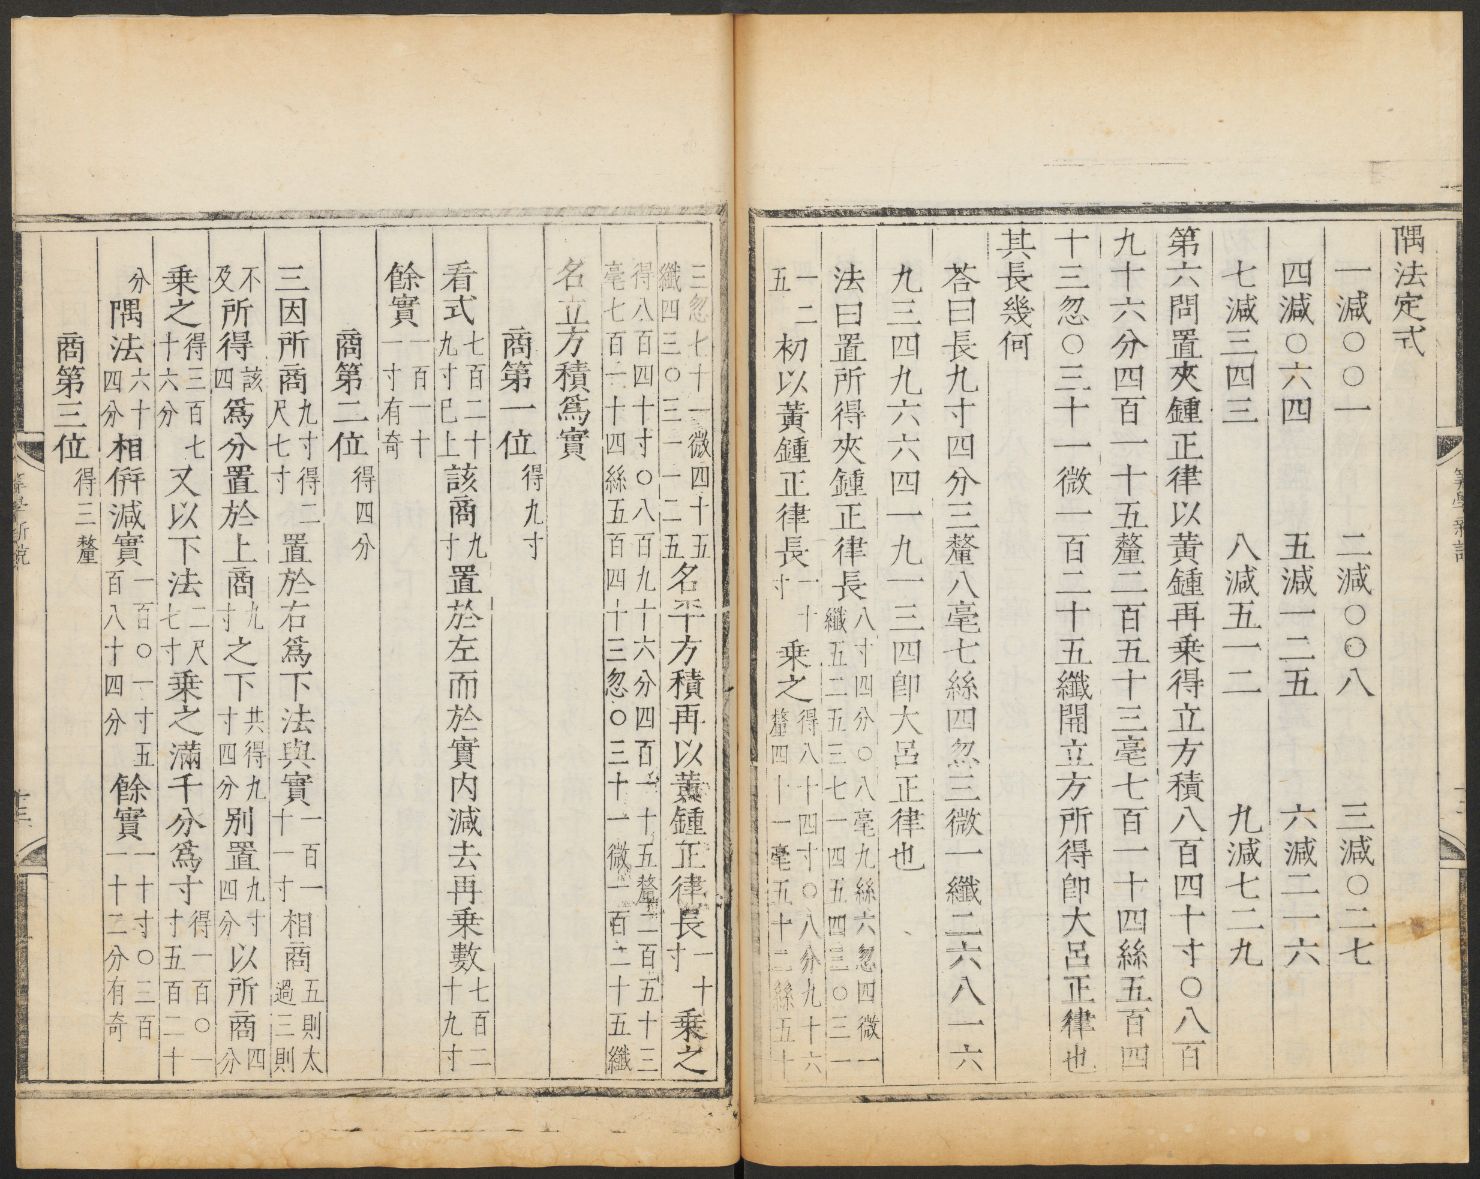 隅法定式
一減○○一　二減○○八　三減○二七
四減○六四　五減一二五　六減二一六
七減三四三　八減五一二　九減七二九
第六問置夾鍾正律以黃鍾再乗得立方積八百四十寸○八百
九十六分四百一十五釐二百五十三毫七百一十四絲五百四
十三忽○三十一微一百二十五纖開立方所得卽大呂正律也
其長幾何
荅曰長九寸四分三釐八毫七絲四忽三微一纖二六八一六
九三四九六六四一九一三四卽大呂正律也
法曰置所得夾鍾正律長八寸四分○八毫九絲六忽四微一纖五二五三七一四五四三○三一
一二五初以黃鍾正律長一十寸乗之得八十四寸○八分九十六釐四十一毫五十二絲五十
三忽七十一微四十五纖四三○三一一二五名平方積再以黃鍾正律長一十寸乗之
得八百四十寸○八百九十六分四百一十五釐二百五十三毫七百一十四絲五百四十三忽○三十一微一百二十五纖
名立方積爲實
商第一位得九寸
看式七百二十九寸已上該商九寸置於左而於實内減去再乗數七百二十九寸
餘實一百一十一寸有奇
商第二位得四分
三因所商九寸得二尺七寸置於右爲下法與實一百一十一寸相商五則太過三則
不及所得該四爲分置於上商九寸之下共得九寸四分别置九寸四分以所商四分
乗之得三百七十六分又以下法二尺七寸乗之滿千分爲寸得一百○一寸五百二十
分隅法六十四分相倂減實一百○一寸五百八十四分餘實一十寸○三百一十二分有奇
商第三位得三釐
算學新說
十三